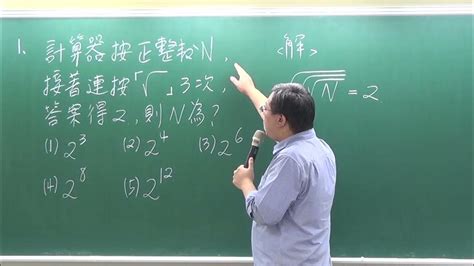 1. 計算器按正整數N,
接著連按「√」3次,
答案得2,則N為?
(1) 2³ (2) 2⁴ (3) 2⁶
(4) 2⁸ (5) 2¹²
<解>
√√√N = 2